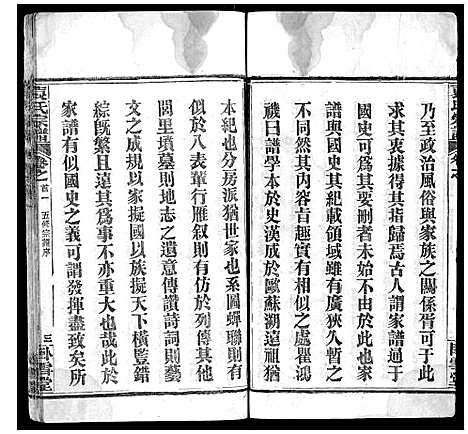 乃至政治風俗與家族之關係胥可于此
求其衷據得其指歸焉古人謂家譜通于
國史可為其要刪者未始不由于此然家
譜與國史其紀載領域雖有廣狹久暫之
不同然其內容旨趣實有相似之處瞿鴻
禨曰譜學本於史漢成於歐蘇溯遠祖猶
本紀也分房派猶世家也系圖蟬聯則有
似於八表輩行雁叙則有仿於列傳其他
閥里墳墓則地志之遺意傳讚詩詞則藝
文之成規以家擬國以族擬天下橫豎錯
綜既繁且遠其為事不亦重大也哉此於
家譜有似國史之義可謂發揮盡致矣所
袁氏宗譜
卷之首一
五修宗譜序
三
臥雪堂